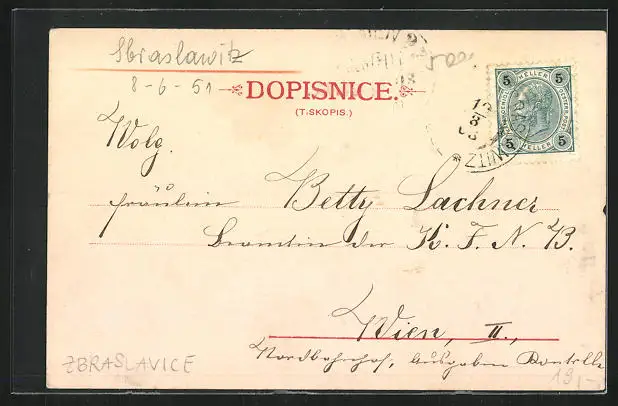 Sbraslawitz
8-6-51
DOPISNICE.
(TISKOPIS.)
5 HELLER 5
5 HELLER 5
Wolg.
Fräulein Betty Lachner
Beamtin der K. F. N. B.
Wien, II.,
Nordbahnhof, Ausgaben Controlle
ZBRASLAVICE
19,-